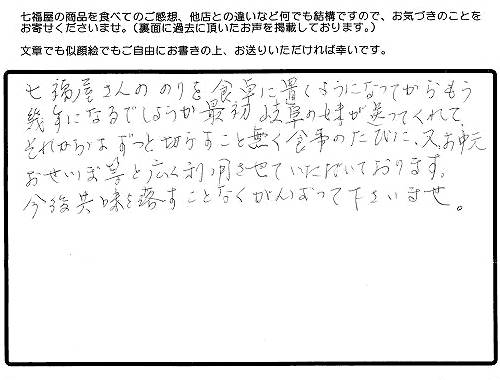 七福屋の商品を食べてのご感想、他店との違いなど何でも結構ですので、お気づきのことを
お寄せくださいませ。（裏面に過去に頂いたお声を掲載しております。）
文章でも似顔絵でもご自由にお書きの上、お送りいただければ幸いです。
七福屋さんの のりを食卓に置くようになってからもう
幾年になるでしょうか最初 岐阜の妹が送ってくれて、
それからはずっと切らすこと無く食事のたびに、又お中元
おせいぼ等と広く利用させていただいております。
今後共味を落すことなくがんばって下さいませ。